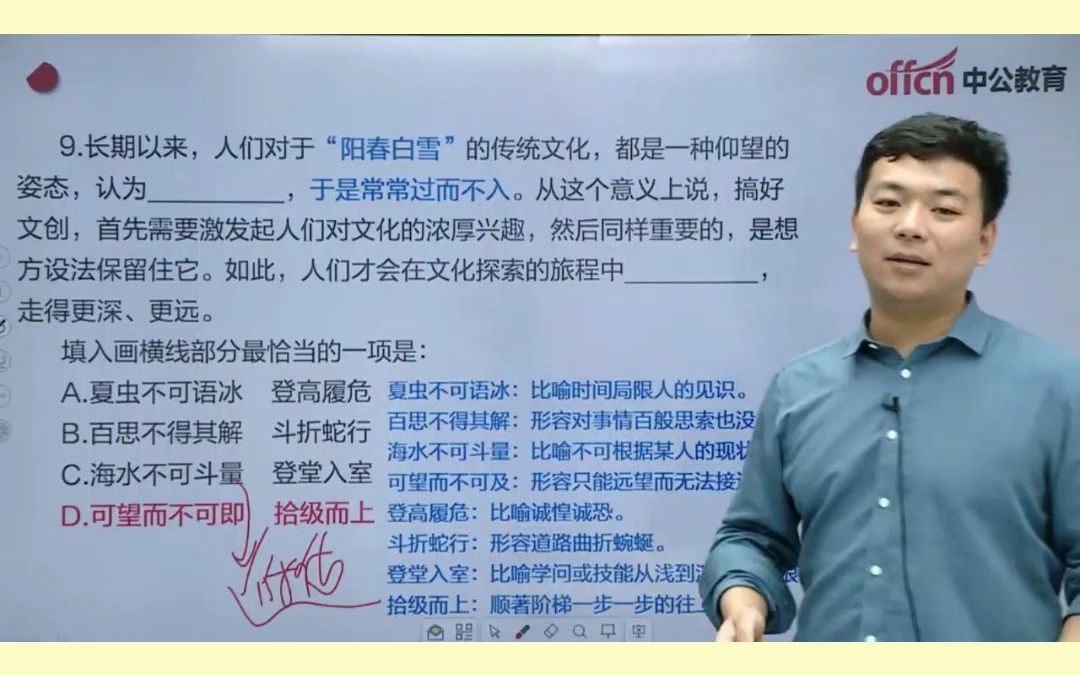 offcn 中公教育
9.长期以来，人们对于“阳春白雪”的传统文化，都是一种仰望的
姿态，认为__________，于是常常过而不入。从这个意义上说，搞好
文创，首先需要激发起人们对文化的浓厚兴趣，然后同样重要的，是想
方设法保留住它。如此，人们才会在文化探索的旅程中__________，
走得更深、更远。
填入画横线部分最恰当的一项是：
A.夏虫不可语冰 登高履危
B.百思不得其解 斗折蛇行
C.海水不可斗量 登堂入室
D.可望而不可即 拾级而上
夏虫不可语冰：比喻时间局限人的见识。
百思不得其解：形容对事情百般思索也没
海水不可斗量：比喻不可根据某人的现状
可望而不可及：形容只能远望而无法接近
登高履危：比喻诚惶诚恐。
斗折蛇行：形容道路曲折蜿蜒。
登堂入室：比喻学问或技能从浅到
拾级而上：顺著阶梯一步一步的往上